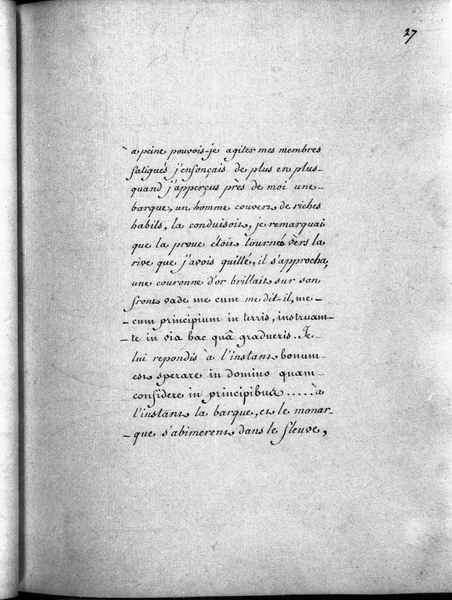 27
à peine pouvois-je agiter mes membres
fatigués j'enfonçais de plus en plus
quand j'apperçus près de moi une
barque, un homme couvert de riches
habits, la conduisoit, je remarquai
que la proue étoit tournée vers la
rive que j'avois quitté, il s'approcha,
une couronne d'or brillait sur son
front vade me cum me dit-il, me-
-cum principium in terris, instruam-
-te in via hac quâ gradueris. Je
lui repondis à l'instant bonum
est sperare in domino quam
confidere in principibus.....à
l'instant la barque, et le monar-
-que s'abimerent dans le fleuve,